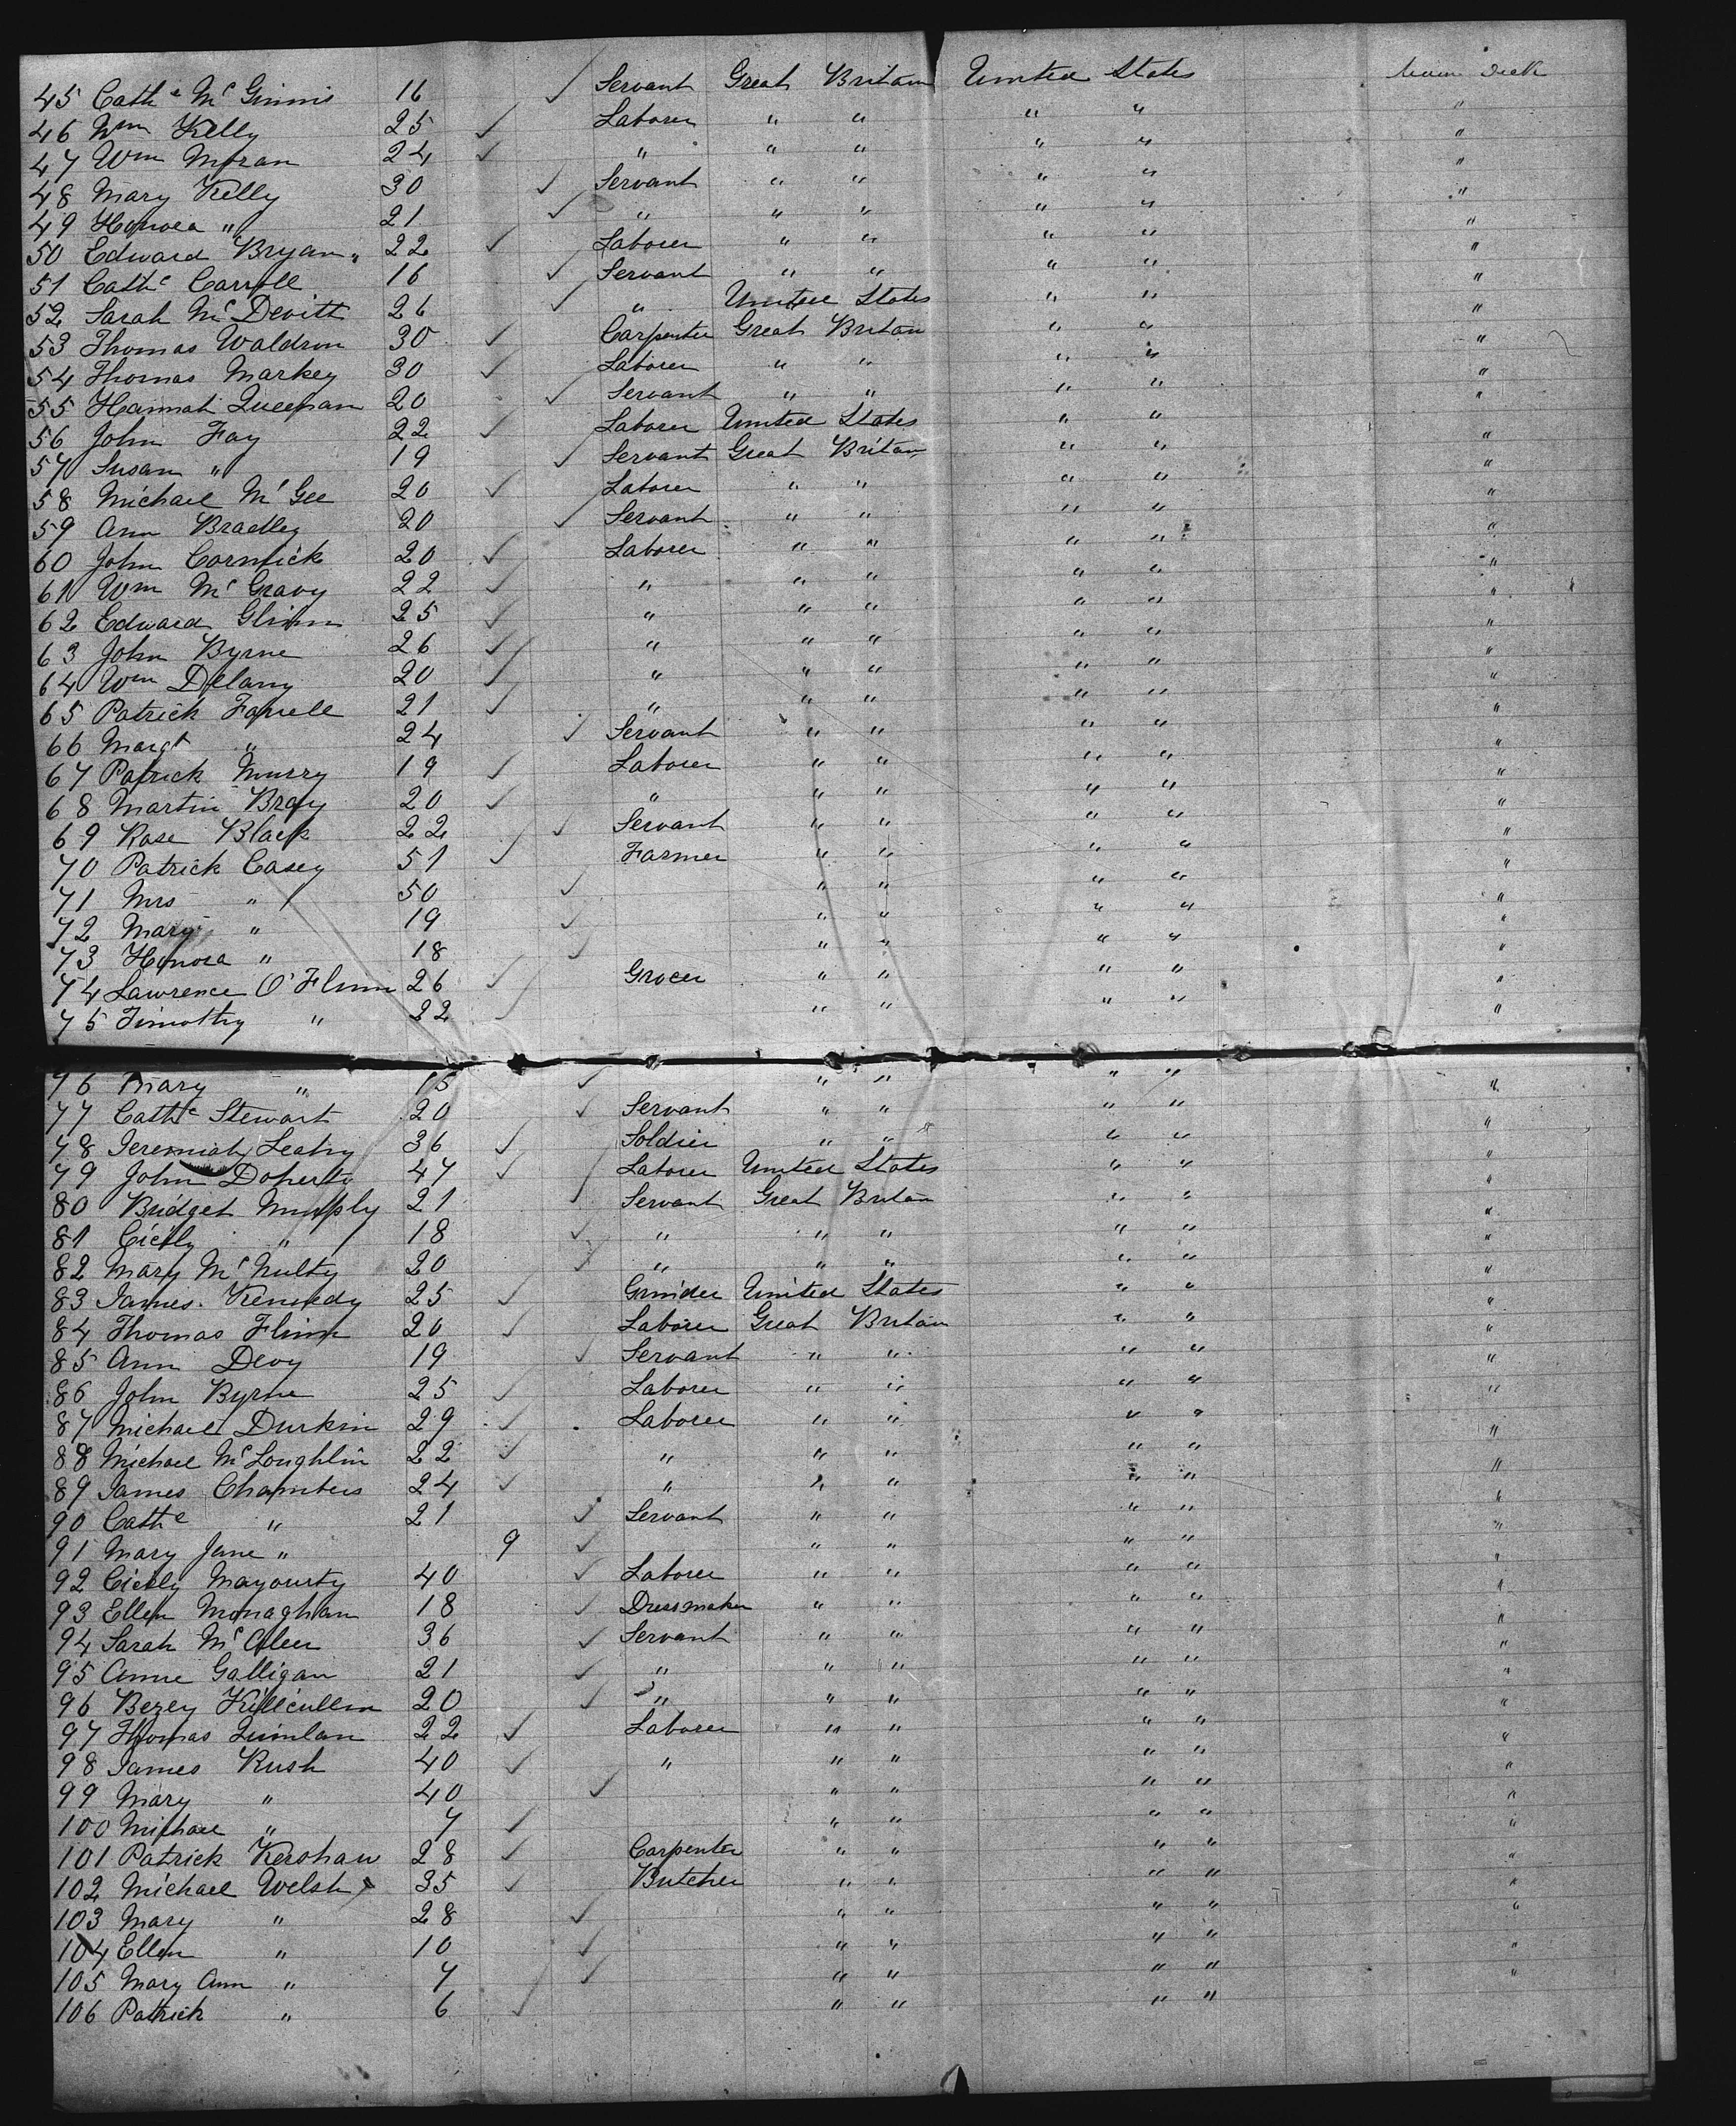 45 Cathe Mc Ginnis 16 ✓ Servant Great Britain United States Main Deck
46 Wm Kelly 25 ✓ Laborer " " " " "
47 Wm Moran 24 ✓ " " " " " "
48 Mary Kelly 30 ✓ Servant " " " " "
49 Honora " 21 ✓ " " " " " "
50 Edward Bryan 22 ✓ Laborer " " " " "
51 Cathe Carroll 16 ✓ Servant " " " " "
52 Sarah Mc Devitt 26 ✓ " United States " " "
53 Thomas Waldron 30 ✓ Carpenter Great Britain " " "
54 Thomas Markey 30 ✓ Laborer " " " " "
55 Hannah Queenan 20 ✓ Servant " " " " "
56 John Fay 22 ✓ Laborer United States " " "
57 Susan " 19 ✓ Servant Great Britain " " "
58 Michael Mc Gee 20 ✓ Laborer " " " " "
59 Ann Bradley 20 ✓ Servant " " " " "
60 John Cormick 20 ✓ Laborer " " " " "
61 Wm Mc Gravy 22 ✓ " " " " " "
62 Edward Glinn 25 ✓ " " " " " "
63 John Byrne 26 ✓ " " " " " "
64 Wm Delany 20 ✓ " " " " " "
65 Patrick Farrell 21 ✓ " " " " " "
66 Margt " 24 ✓ Servant " " " " "
67 Patrick Murry 19 ✓ Laborer " " " " "
68 Martin Bray 20 ✓ " " " " " "
69 Rose Black 22 ✓ Servant " " " " "
70 Patrick Casey 51 ✓ Farmer " " " " "
71 Mrs " 50 ✓ " " " " "
72 Mary " 19 ✓ " " " " "
73 Honora " 18 ✓ " " " " "
74 Lawrence O'Flinn 26 ✓ Grocer " " " " "
75 Timothy " 22 ✓ " " " " "
76 Mary " 15 ✓ " " " " "
77 Cathe Stewart 20 ✓ Servant " " " " "
78 Jeremiah Leahy 36 ✓ Soldier " " " " "
79 John Doherty 47 ✓ Laborer United States " " "
80 Bridget Murphy 21 ✓ Servant Great Britain " " "
81 Cicily " 18 ✓ " " " " " "
82 Mary Mc Nulty 20 ✓ " " " " " "
83 James Kennedy 25 ✓ Grinder United States " " "
84 Thomas Flinn 20 ✓ Laborer Great Britain " " "
85 Ann Devy 19 ✓ Servant " " " " "
86 John Byrne 25 ✓ Laborer " " " " "
87 Michael Durkin 29 ✓ Laborer " " " " "
88 Michael Mc Loughlin 22 ✓ " " " " " "
89 James Chambers 24 ✓ " " " " " "
90 Cathe " 21 ✓ Servant " " " " "
91 Mary Jane " 9 ✓ " " " " "
92 Cicily 40 ✓ Laborer " " " " "
93 Ellen Monaghan 18 ✓ Dressmaker " " " " "
94 Sarah Mc Aleer 36 ✓ Servant " " " " "
95 Anne Galligan 21 ✓ " " " " " "
96 Bezey Killcullen 20 ✓ " " " " " "
97 Thomas Quinlan 22 ✓ Laborer " " " " "
98 James Rush 40 ✓ " " " " " "
99 Mary " 40 ✓ " " " " "
100 Michael " 7 ✓ " " " " "
101 Patrick Kershaw 28 ✓ Carpenter " " " " "
102 Michael Welsh 35 ✓ Butcher " " " " "
103 Mary " 28 ✓ " " " " "
104 Ellen " 10 ✓ " " " " "
105 Mary Ann " 7 ✓ " " " " "
106 Patrick " 6 ✓ " " " "